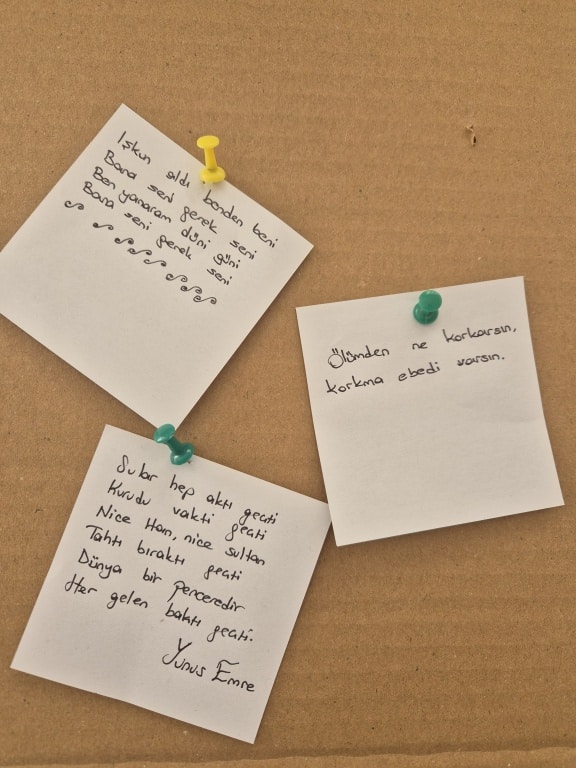 Işkın aldı benden beni
Bana seni gerek seni
Ben yanaram düni güni
Bana seni gerek seni
Ölümden ne korkarsın,
korkma ebedi varsın.
Sular hep aktı geçti
Kurudu vakti geçti
Nice Han, nice sultan
Tahtı bıraktı geçti
Dünya bir penceredir
Her gelen baktı geçti.
Yunus Emre